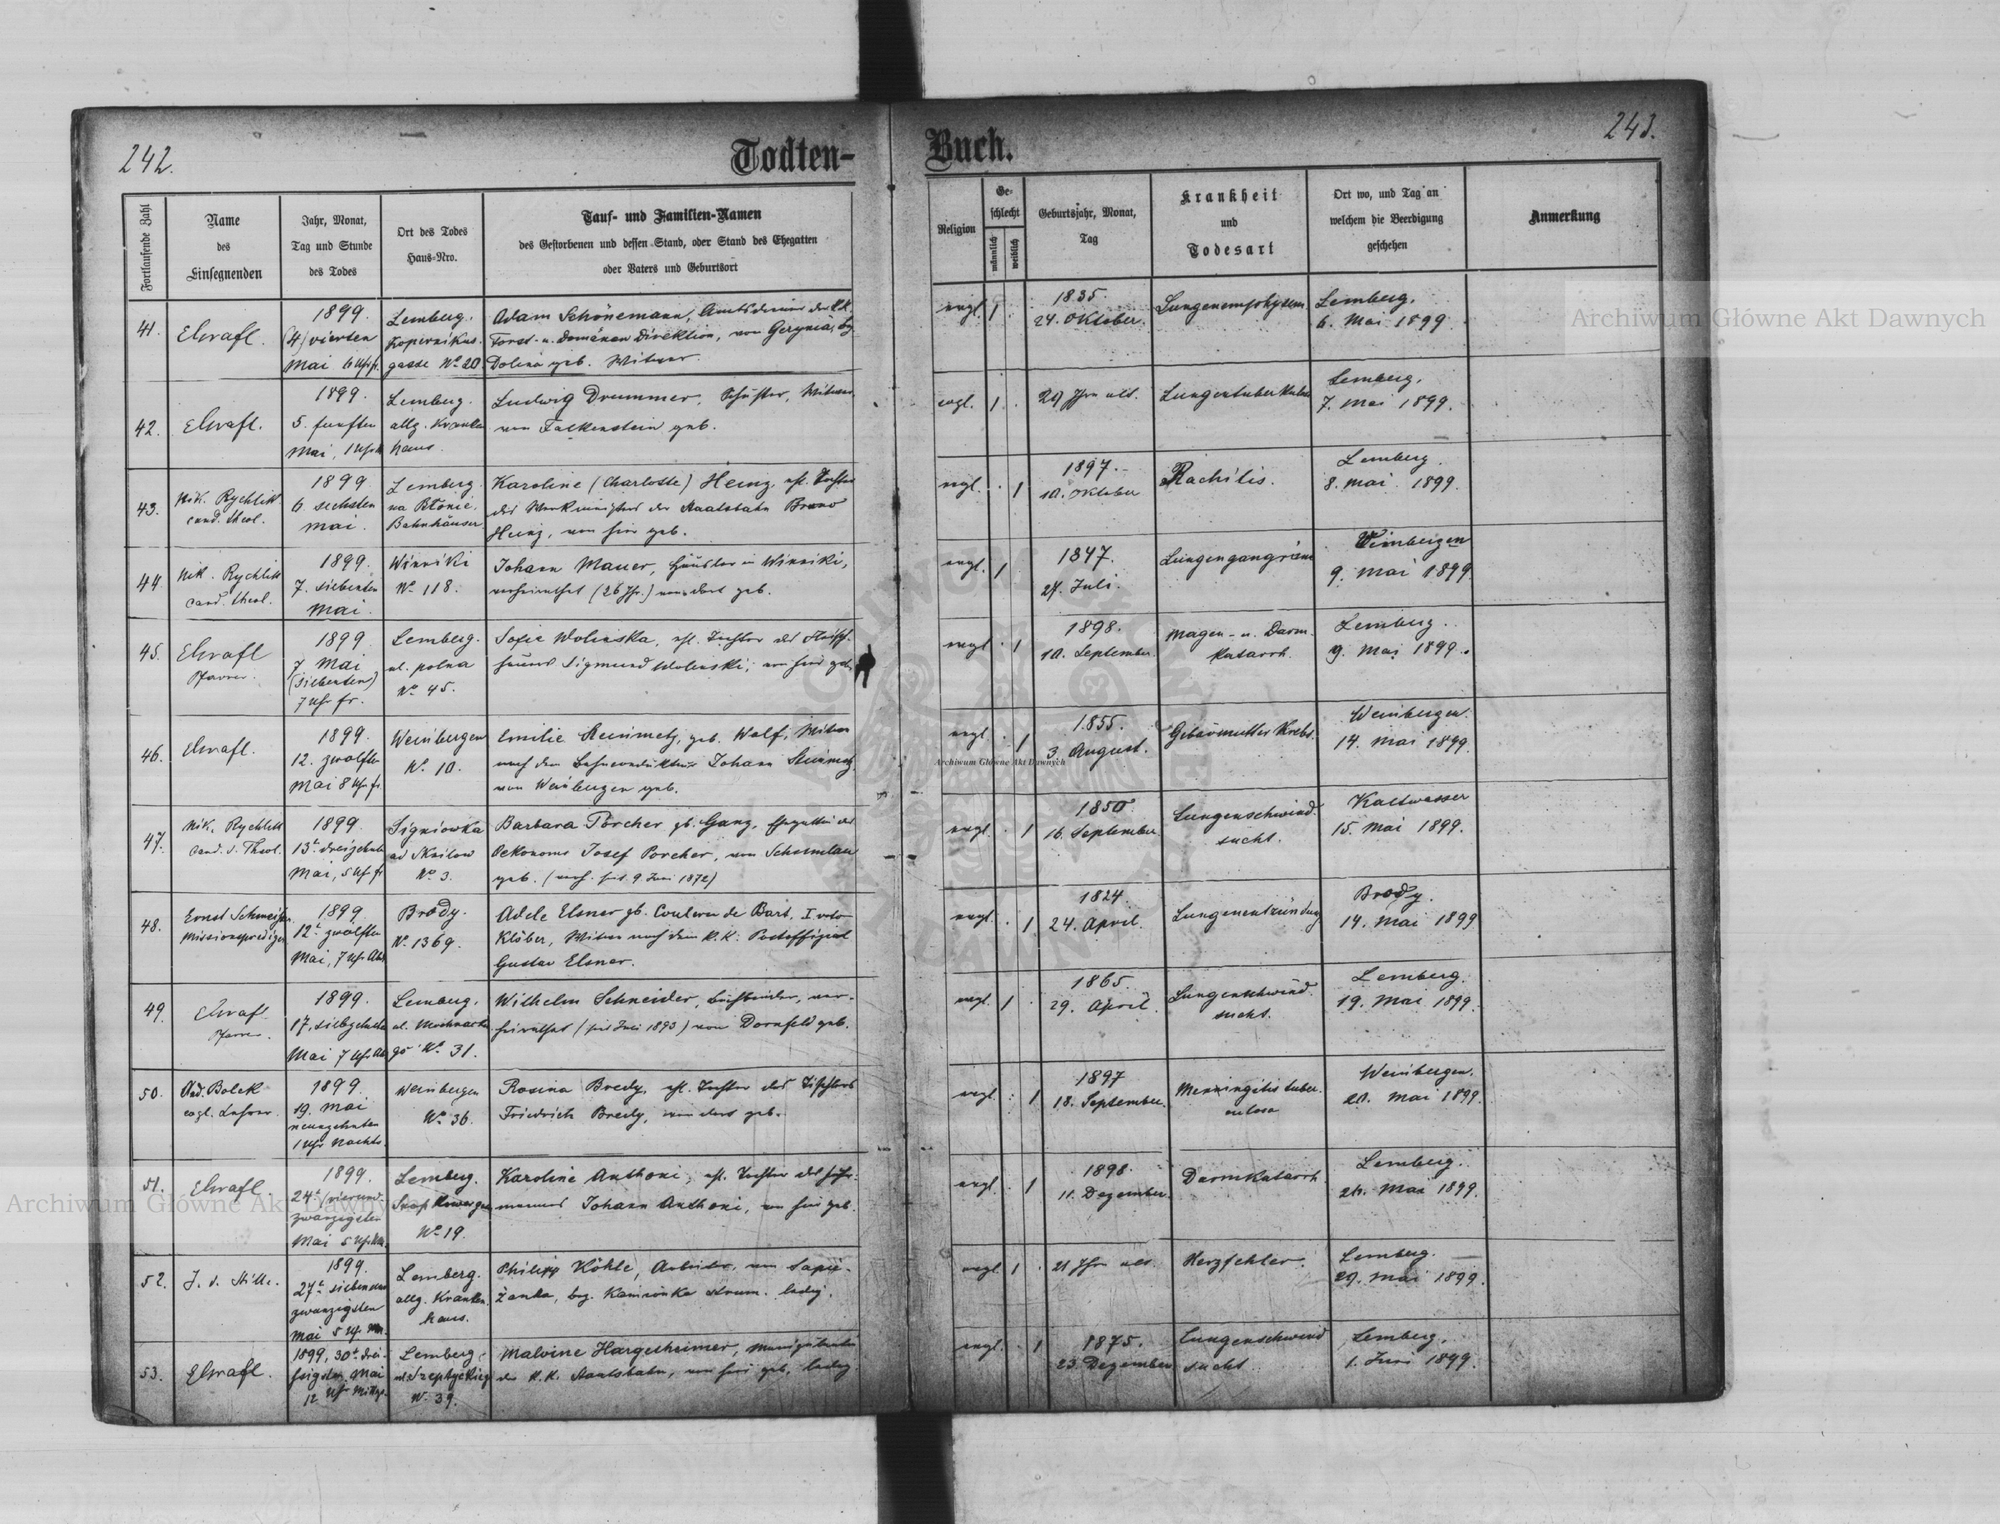 242.
Todten-
Fortlaufende Zahl
Name
des
Einsegnenden
Jahr, Monat,
Tag und Stunde
des Todes
Ort des Todes
Haus-Nro.
Tauf- und Familien-Namen
des Gestorbenen und dessen Stand, oder Stand des Ehegatten
oder Vaters und Geburtsort
41.
1899.
(4) vierten
Mai 6 Uhr fr.
Lemberg.
Kopernikus-
gasse No 20.
Adam Schönemann, Amtsdiener der k.k.
Forst- u. Domänen Direktion, von
Dolina geb. Witwer.
42.
1899.
5. fünften
Mai, 1 Uhr
Lemberg.
allg. Kranken
haus.
Ludwig Drummer, Schuster, Witwer,
von Falkenstein geb.
43.
Nik. Rychlik
cand. theol.
1899
6. sechsten
Mai.
Lemberg
na Błonie
Bahnhäuser
Karoline (Charlotte) Heinz, ehl. Tochter
des Werkmeisters der Staatsbahn Bruno
Heinz, von hier geb.
44.
Nik. Rychlik
cand. theol.
1899.
7. siebenten
Mai.
Winniki
No 118.
Johann Mauer, Häusler in Winniki,
verheirathet (26 Jhr.) von dort geb.
45.
Pfarrer.
1899
7 Mai
(siebenten)
7 Uhr fr.
Lemberg.
ul. polna
No 45.
Sofie Wolinska, ehl. Tochter des Fleisch-
hauers Sigmund Wolinski, von hier geb.
46.
1899.
12. zwölften
Mai 8 Uhr fr
Weinbergen
No. 10.
Emilie Steinmetz, geb. Wolf, Witwe
nach dem Bahnconducteur Johann Steinmetz
von Weinbergen geb.
47.
Nik. Rychlik
cand. d. Theol.
1899
13t dreizehnten
Mai, 5 Uhr fr
Signiowka
ad Skniłow
No 3.
Barbara Porcher gb. Ganz, Ehegattin des
Oekonoms Josef Porcher, von
geb. (verh. seit 9 Juni 1872)
48.
Missionsprediger
1899
12t zwölften
Mai, 7 Uhr Abd
Brody.
No 1369.
Adele Elsner gb. Couleru de Bart, I voto
Klöber, Witwe nach dem k.k. Postoffizial
Gustav Elsner.
49.
Pfarrer.
1899.
17. siebzehnten
Mai 7 Uhr Ab
Lemberg.
ul.
go No 31.
Wilhelm Schneider, Buchbinder, ver-
heirathet (seit Juli 1893) von Dornfeld geb.
50.
Ad. Bolek
evgl. Lehrer.
1899
19. Mai
neunzehnten
1 Uhr Nachts.
Weinbergen
No 36.
Rosina Bredy, ehl. Tochter des Tischlers
Friedrich Bredy, von dort geb.
51.
1899.
24t (vierund-
zwanzigsten
Mai 5 Uhr
Lemberg.
No 19.
Karoline Anthoni, ehl. Tochter des Fuhr-
mannes Johann Anthoni, von hier geb.
52.
1899.
27t siebenund
zwanzigsten
Mai 5 Uhr
Lemberg.
allg. Kranken
haus.
Philipp Köhle, Arbeiter, von Sapie-
żanka, bzg. Kamionka strum. ledig.
53.
1899, 30t drei-
ßigsten Mai
12 Uhr Mittgs.
Lemberg,
No. 39.
Malvine Hargesheimer, Manipulantin
der k.k. Staatsbahn, von hier geb., ledig.
Buch.
243.
Religion
Ge-
schlecht
männlich
weiblich
Geburtsjahr, Monat,
Tag
Krankheit
und
Todesart
Ort wo, und Tag an
welchem die Beerdigung
geschehen
Anmerkung
evgl. 1
1835.
24. Oktober.
Lungenemphysem
Lemberg.
6. Mai 1899.
evgl. 1
29 Jhre alt.
Lungentuberkulose
Lemberg.
7. Mai 1899.
evgl. 1
1897.
10. Oktober
Rachitis.
Lemberg.
8. Mai 1899.
evgl. 1
1847.
27. Juli.
Lungengangrän
Weinbergen
9. Mai 1899.
evgl. 1
1898.
10. September.
Magen- u. Darm-
katarrh.
Lemberg.
9. Mai 1899.
evgl. 1
1855.
3. August.
Gebärmutter Krebs.
Weinbergen.
14. Mai 1899.
evgl. 1
1850.
16. September.
Lungenschwind-
sucht.
Kaltwasser
15. Mai 1899.
evgl. 1
1824.
24. April.
Lungenentzündung
Brody.
14. Mai 1899
evgl. 1
1865.
29. April.
Lungenschwind-
sucht.
Lemberg.
19. Mai 1899.
evgl. 1
1897
18. September.
Meningitis tuber-
culosa
Weinbergen.
20. Mai 1899.
evgl. 1
1898.
11. Dezember.
Darmkatarrh.
Lemberg.
26. Mai 1899.
evgl. 1
21 Jhre alt.
Herzfehler.
Lemberg.
29. Mai 1899.
evgl. 1
1875.
23. Dezember
Lungenschwind
sucht.
Lemberg.
1. Juni 1899.
Archiwum Główne Akt Dawnych
Archiwum Główne Akt Dawnych
Archiwum Główne Akt Dawnych